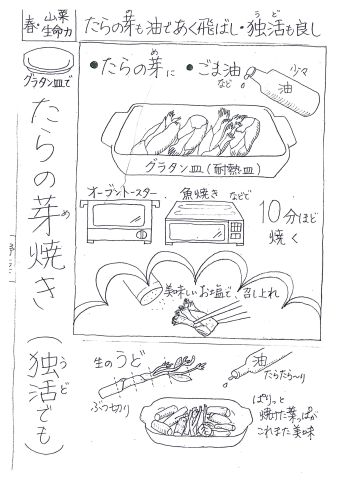 春・山菜
生命力
たらの芽も油であく飛ばし・独活も良し
め
うど
グラタン皿で
たらの芽焼き(独活でも)
め
うど
●たらの芽に
め
●ごま油
など
少々
油
グラタン皿(耐熱皿)
オーブントースター、魚焼きなどで
10分ほど
焼く
美味しいお塩で、召し上れ
生のうど
ぶつ切り
油
たらたら〜り
ぱりっと
焼けた葉っぱが
これまた美味